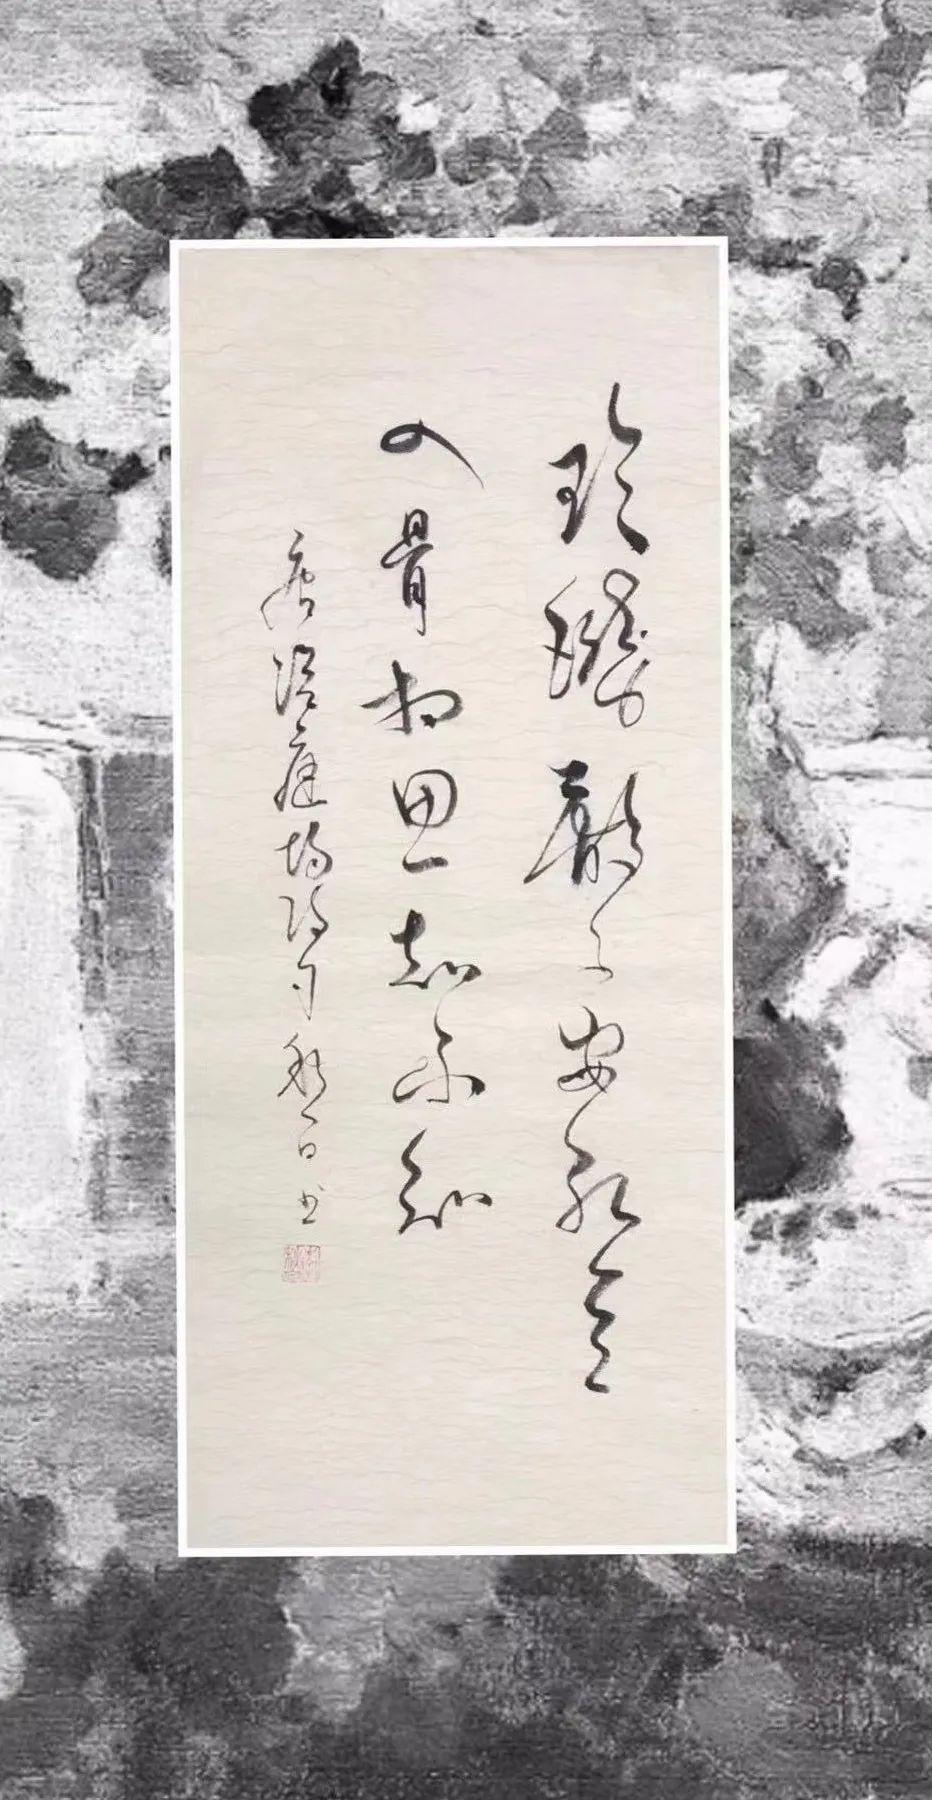 玲瓏骰子安紅豆
入骨相思知不知
唐溫庭筠詩句 書